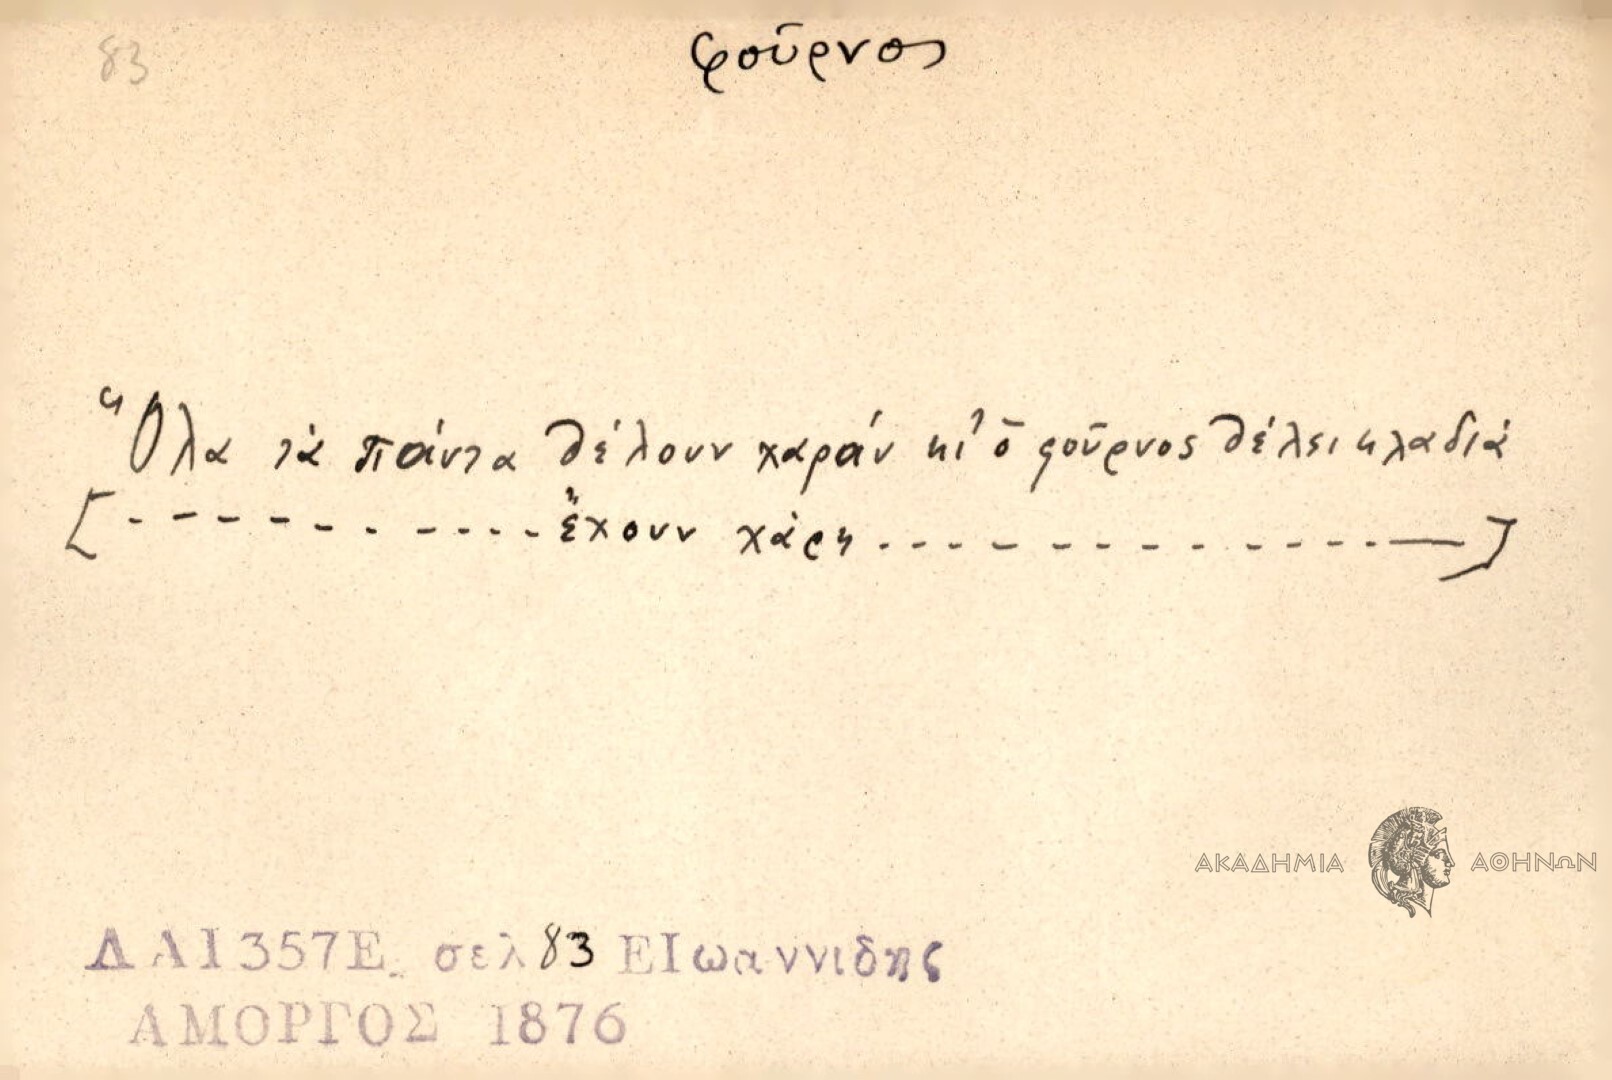 83
φοῦρνος
Ὅλα τὰ πάντα θέλουν χαράν κι' ὁ φοῦρνος θέλει κλαδιά
[- - - - - - - - - - ἔχουν χάρη - - - - - - - - - - - -]
ΑΚΑΔΗΜΙΑ ΑΘΗΝΩΝ
ΛΑ1357Ε. σελ 83 ΕΙωαννιδης
ΑΜΟΡΓΟΣ 1876